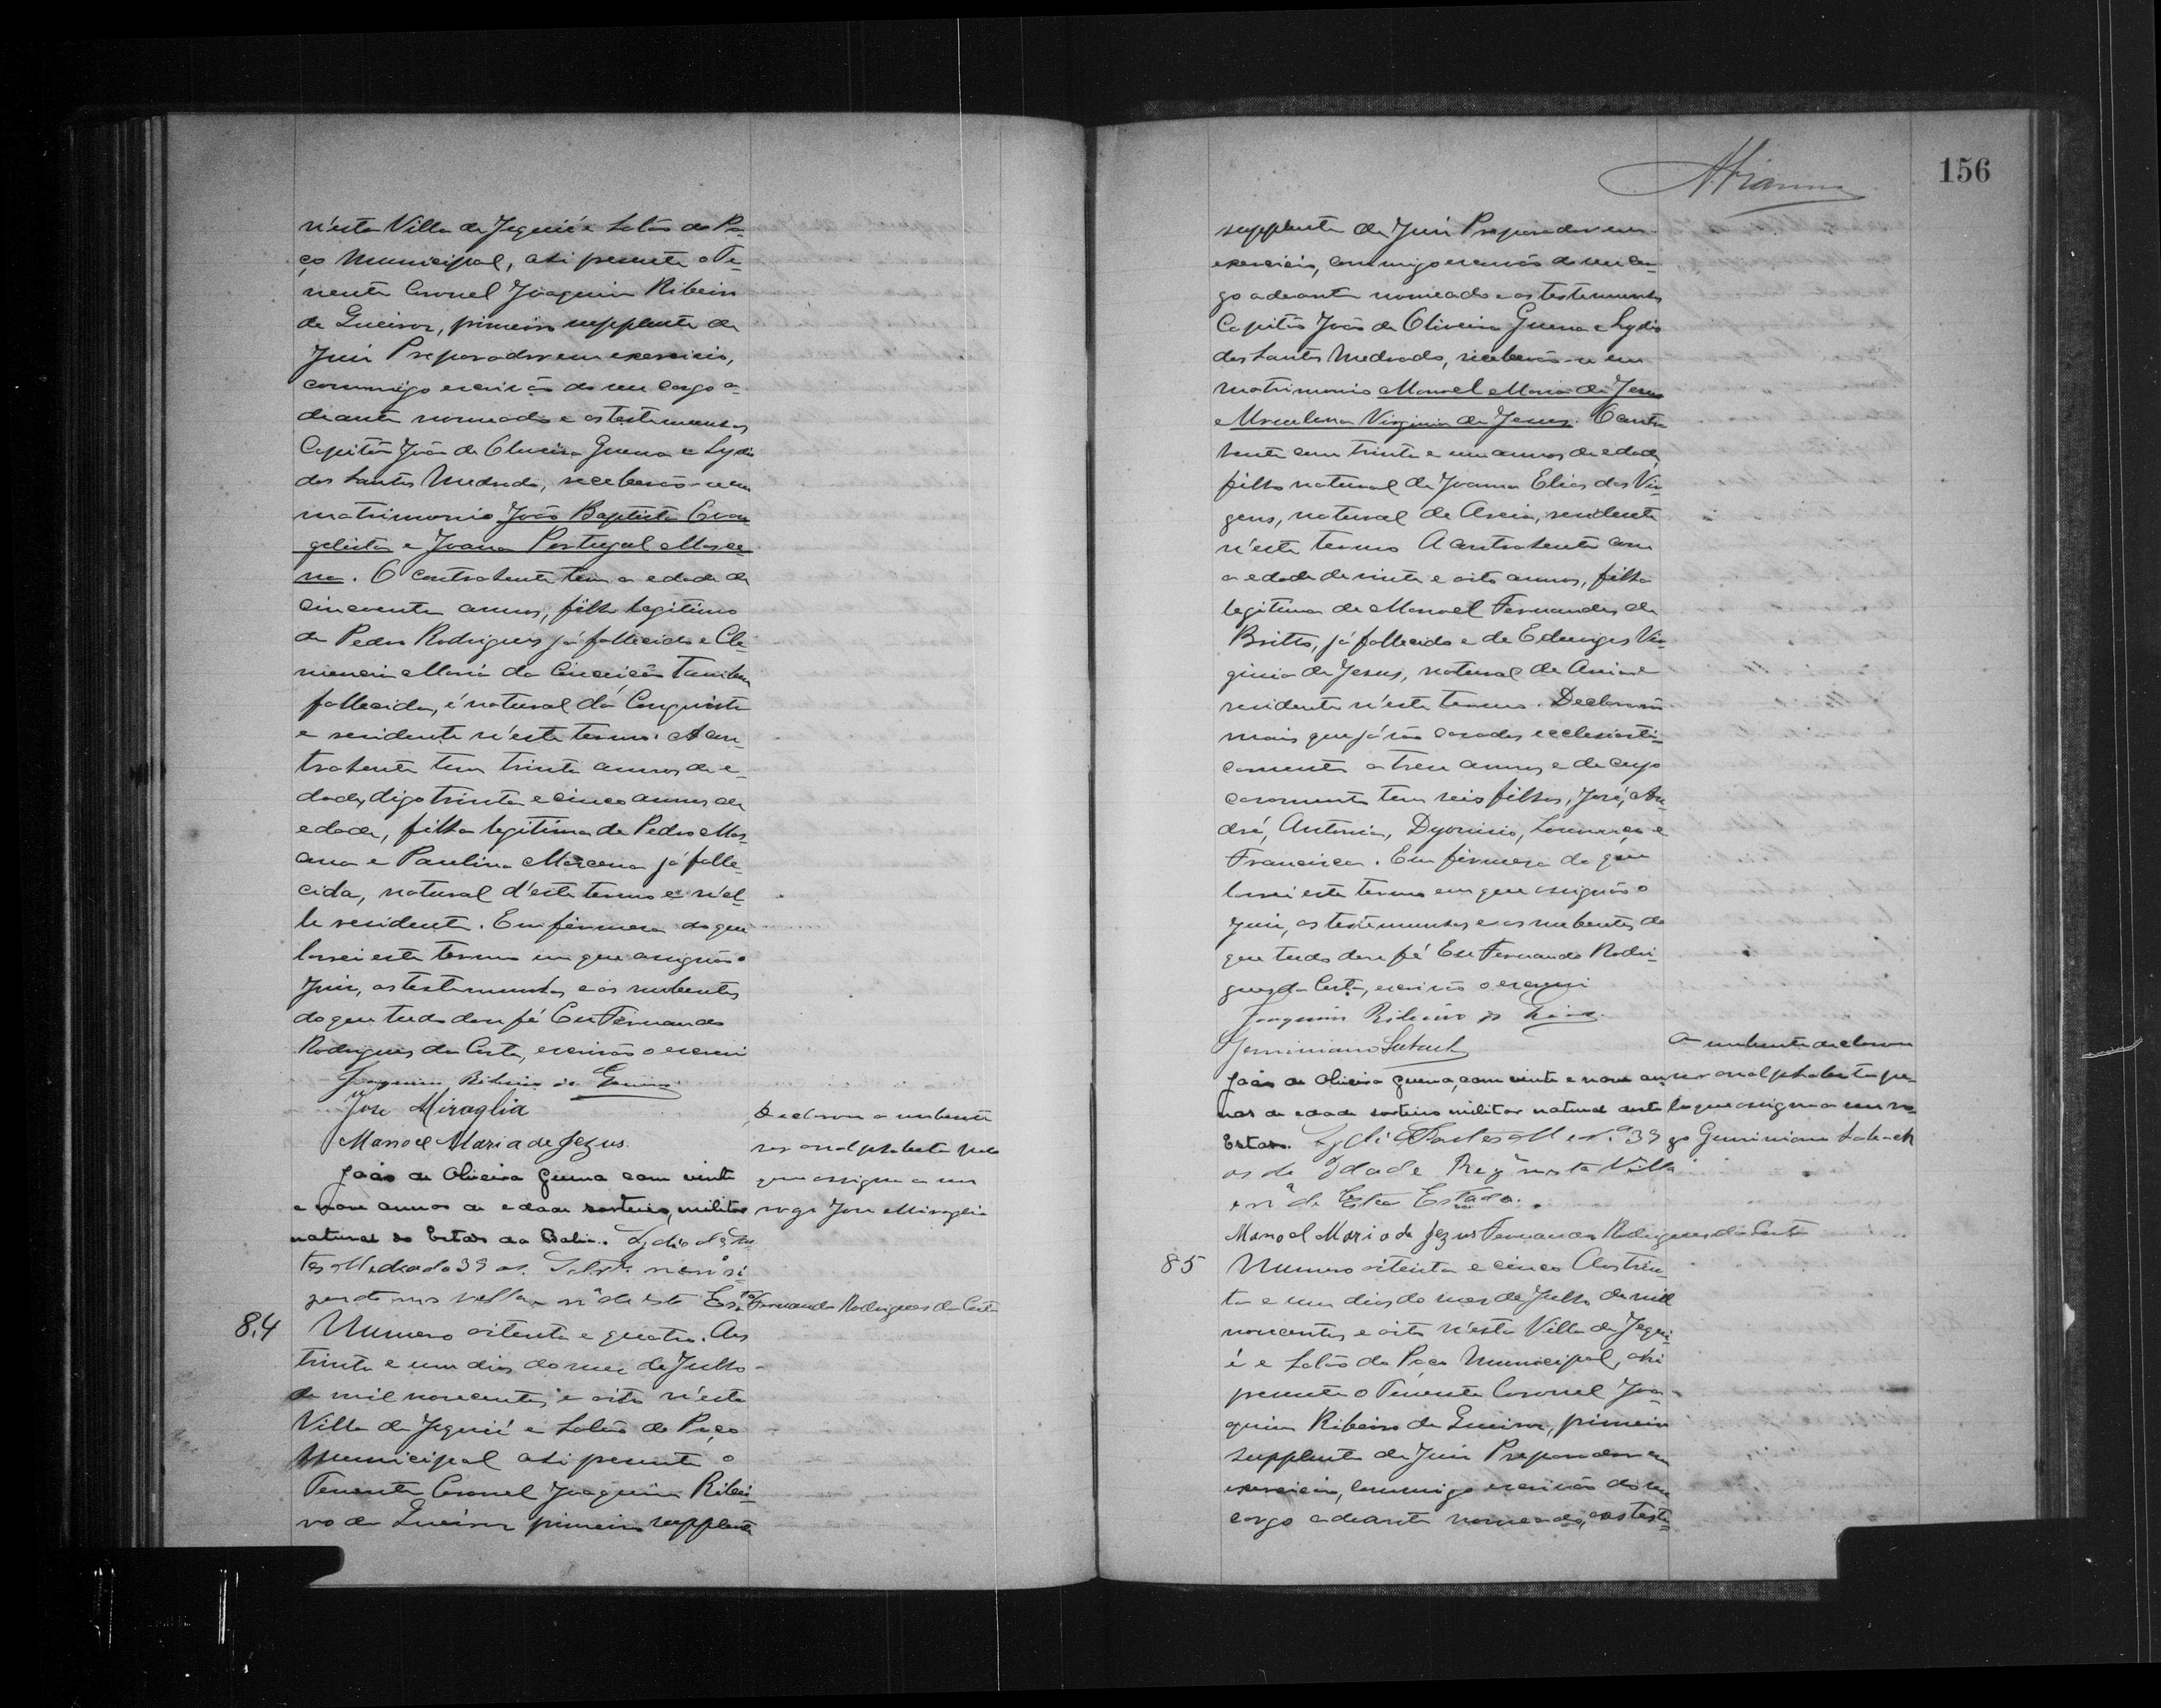 n'esta Villa de Jequié e Salão do Pa-
ço Municipal, ahi presente o Te-
nente Coronel Joaquim Ribeiro
de Queiroz, primeiro supplente de
Juiz Preparador em exercicio,
commigo escrivão do seu cargo a-
deante nomeado e as testemunhas
Capitão João de Oliveira Guerra e Lydio
dos Santos Medrado, receberão-se em
matrimonio João Baptista Evan
gelista e Joana Portugal Masce
na. O contrahente tem a edade de
cincoenta annos, filho legitimo
de Pedro Rodrigues já fallecido e Cle-
mencia Maria da Conceição tambem
fallecida, é natural da Conquista
e residente n'este termo. A con-
trahente tem trinta annos de e-
dade, digo trinta e cinco annos de
edade, filha legitima de Pedro Mas
cena e Paulina Mascena já falle-
cida, natural d'este termo e n'el-
le residente. Em firmeza do que
lavrei este termo em que assignão o
Juiz, as testemunhas e os nubentes
do que tudo dou fé Eu Fernando
Rodrigues da Costa, escrivão o escrevi
Joaquim Ribeiro de Queiroz
José Miraglia
Manoel Maria de Jezus
João de Oliveira Guerra com vinte
e nove annos de edade solteiro, militar
natural do Estado da Bahia. Lydio dos San
tos Medrado 39 as.
villa n.al de este Est.º
Declarou a nubente
ser analphabeta pelo
que assigna a seu
rogo José Miraglia
Fernando Rodrigues da Costa
84 Numero oitenta e quatro. Aos
trinta e um dias do mez de Julho
de mil novecentos e oito n'esta
Villa de Jequié e Salão do Paço
Municipal ahi presente o
Tenente Coronel Joaquim Ribei-
ro de Queiroz primeiro supplente
156
supplente de Juiz Preparador em
exercicio, commigo escrivão do seu car-
go adeante nomeado e as testemunhas
Capitão João de Oliveira Guerra e Lydio
dos Santos Medrado, receberão-se em
matrimonio Manoel Maria de Jesus
e Virginia de Jesus. O contra
hente com trinta e um annos de edade,
filho natural de Joanna Elias das Vir-
gens, natural de Areia, residente
n'este termo A contrahente com
a edade de vinte e oito annos, filha
legitima de Manoel Fernandes de
Britto, já fallecido e de Eduviges Vir-
ginia de Jesus, natural de Areia e
residente n'este termo. Declararão
mais que já são casados ecclesiasti-
camente a treze annos e de cujo
casamento tem seis filhos, José, An-
dré, Antonia, Dyonisio, Lourenço e
Francisca. Em firmeza do que
lavrei este termo em que assignão o
Juiz, as testemunhas e os nubentes do
que tudo dou fé Eu Fernando Rodri-
gues da Costa, escrivão o escrevi
Joaquim Ribeiro de
Geminiano
João de Oliveira Guerra, com vinte e nove an
nos de edade solteiro militar natural deste
Estado.
os de Idade nesta Villa
de Este Estado.
A nubente declarou
ser analphabeta pe-
lo que assigna a seu ro-
go Geminiano
Manoel Maria de Jezus Fernando Rodrigues da Costa
85 Numero oitenta e cinco Aos trin-
ta e um dias do mez de Julho de mil
novecentos e oito n'esta Villa de Jequi-
é e Salão do Paço Municipal, ahi
presente o Tenente Coronel Joa-
quim Ribeiro de Queiroz, primeiro
supplente de Juiz Preparador em
exercicio, commigo escrivão do seu
cargo adeante nomeado, e as teste-